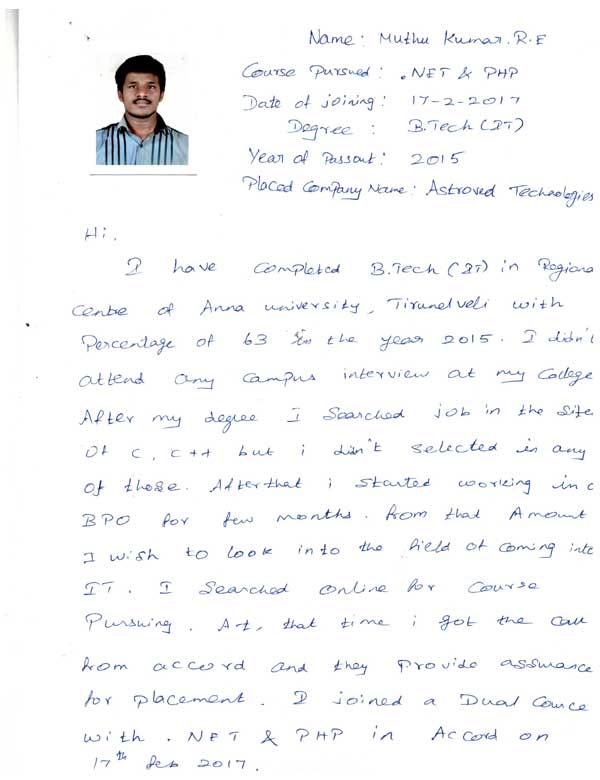 Name: Muthu Kumar.R.E
Course Pursued: .NET & PHP
Date of joining: 17-2-2017
Degree : B.Tech (IT)
Year of Passout: 2015
Placed Company Name: Astroved Technologies
Hi,
I have completed B.Tech (IT) in Regiona
Centre of Anna university, Tirunelveli with
Percentage of 63 in the year 2015. I didn't
attend any campus interview at my College
After my degree I Searched job in the Site
Of C, C++ but i didn't selected in any
of those. After that i started working in a
BPO for few months. from that Amount
I wish to look into the field of coming into
IT. I Searched online for Course
Pursuing. At, that time i got the Call
from accord and they provide assurance
for placement. I joined a Dual Course
with .NET & PHP in Accord on
17th feb 2017.